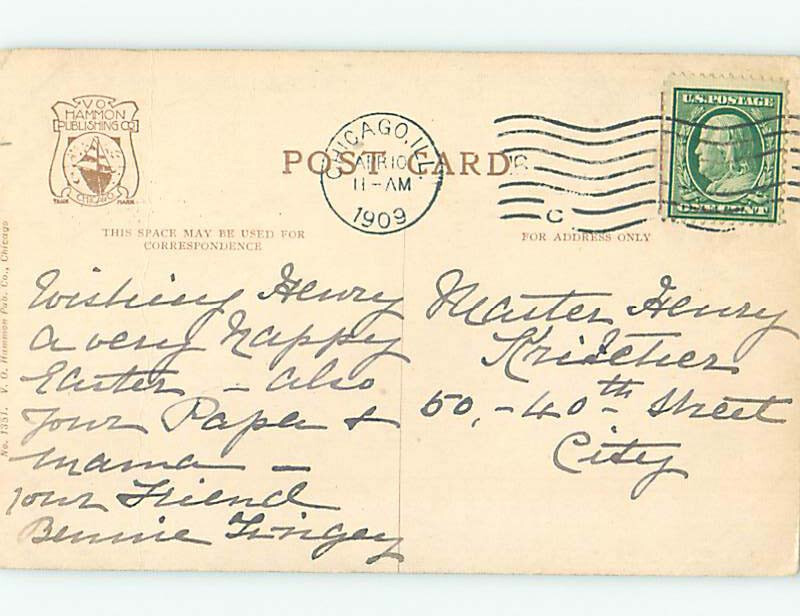 V.O.
HAMMON
PUBLISHING CO.
CHICAGO
TRADE MARK
POST CARD
CHICAGO, ILL.
APR 10
11-AM
1909
C
U.S. POSTAGE
ONE CENT
THIS SPACE MAY BE USED FOR
CORRESPONDENCE
FOR ADDRESS ONLY
No. 1351. V. O. Hammon Pub. Co., Chicago
Wishing Henry
a very Happy
Easter – also
your Papa &
mama –
your Friend
Bennie
Master Henry
50, – 40th Street
City